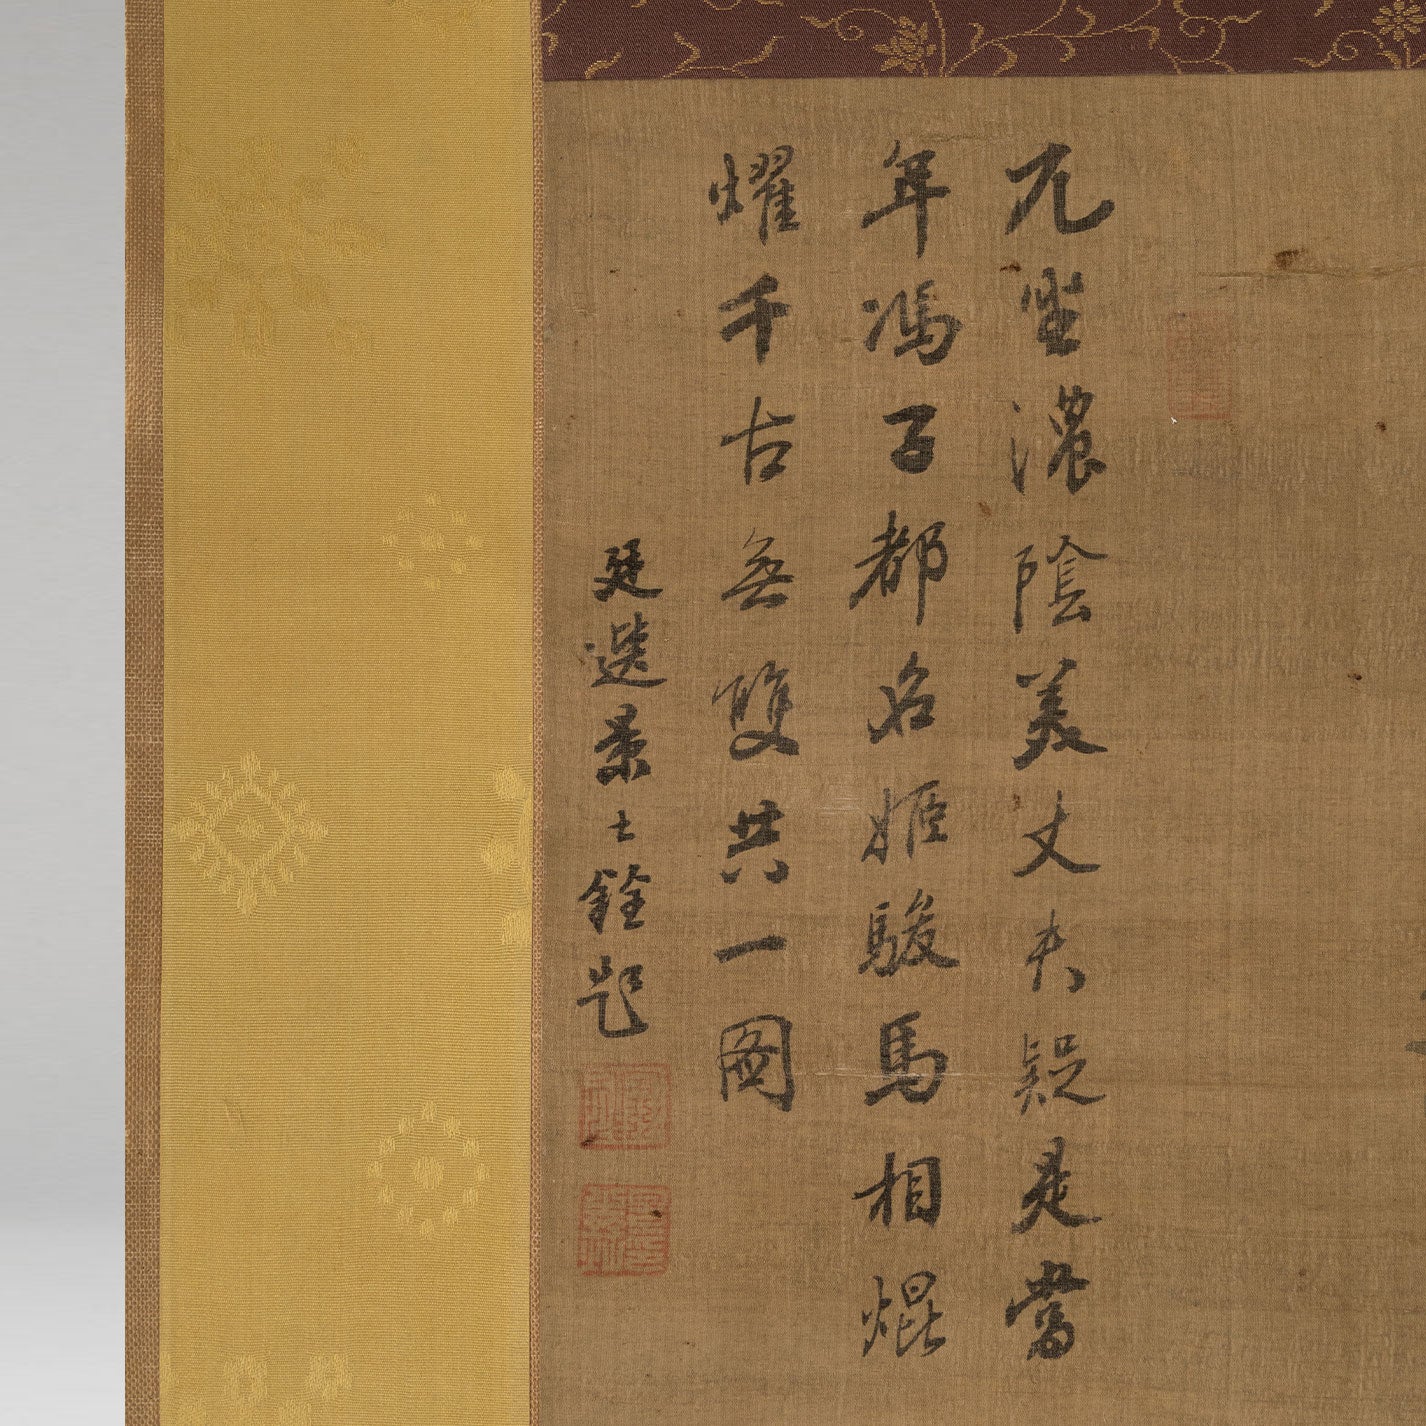 兀坐濃陰美丈夫疑是當
年馮子都名姬駿馬相焜
燿千古無雙共一圖
廷選葉士銓題